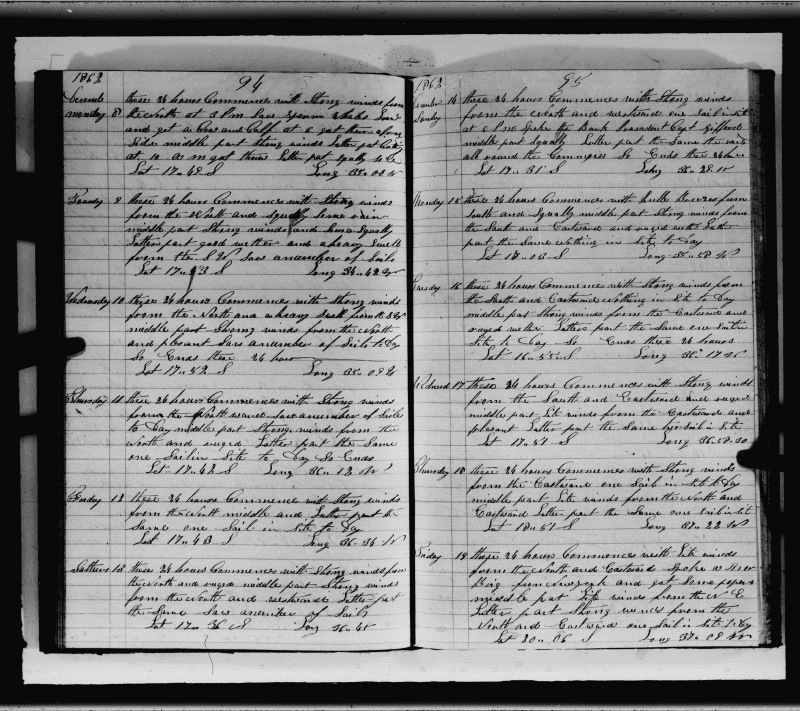 1862
94
Decemb
Monday 8 these 24 hours Commences with Strong winds from
the North at 3 PM Saw Sperm Whales
and got a Cow and Calf at 6 got them along
Side middle part Strong winds Latter part
at 10 AM got them Latter part
Lat 17.. 48 S Long 35.. 00 W
Tuesday 9 these 24 hours Commences with Strong winds
from the North and Squally Some rain
middle part Strong winds and Some Squally
Latter part good wether and a heavy Swell
from the S W Saw anumber of Sails
Lat 17.. 43 S Long 34.. 42 W
Wednesday 10 these 24 hours Commences with Strong winds
from the North and a heavy Swell from the S W
middle part Strong winds from the North
and plesent Saw anumber of Sails to Day
So Ends these 24 hours
Lat 17.. 52 S Long 35.. 09 W
Thursday 11 these 24 hours Commences with Strong winds
from the North ward Saw anumber of Sails
to Day middle part Strong winds from the
North and ruged Latter part the Same
one Sail in Site to Day So Ends
Lat 17.. 42 S Long 36.. 12 W
Friday 12 these 24 hours Commences with Strong winds
from the North middle and Latter part the
Same one Sail in Site to Day
Lat 17.. 43 S Long 36.. 34 W
Satturs 13 these 24 hours Commences with Strong winds from
the North and ruged middle part Strong winds
from the North and restward Latter part
the Same Saw anumber of Sails
Lat 17.. 36 S Long 36.. 45
1862
95
Sunday 14 these 24 hours Commences with Strong winds
from the North and restward one Sail in Site
at 6 PM Spoke the Bark President Capt Gifford
middle part Squally Latter part the Same the
all around the Commpass So Ends these 24 hours
Lat 17.. 31 S Long 36.. 28 W
Monday 15 these 24 hours Commences with Breezes from
South and Squally middle part Strong winds from
the South and Eastward and ruged with Latter
part the Same Nothing in Site to Day
Lat 17.. 03 S Long 35.. 58 W
Tuesday 16 these 24 hours Commences with Strong winds from
the South and Eastward Nothing in Site to Day
middle part Strong winds from the Eastward and
ruged wether Latter part the Same one Sail in
Site to Day So Ends these 24 hours
Lat 16.. 55 S Long 36.. 17 W
Wednesd 17 these 24 hours Commences with Strong winds
from the South and Eastward and ruged
middle part Lite winds from the Eastward and
plesent Latter part the Same Sail in Site
Lat 17.. 47 S Long 36.. 58
Thursday 18 these 24 hours Commences with Strong winds
from the Eastward one Sail in Site to Day
middle part Lite winds from the North and
Eastward Latter part the Same one Sail in Site
Lat 18.. 51 S Long 37.. 22 W
Friday 19 these 24 hours Commences with Lite winds
from the North and Eastward Spoke a
Brig from Newyork and got Some papers
middle part Lite winds from the N E
Latter part Strong winds from the
North and Eastward one Sail in Site to Day
Lat 20.. 06 S Long 37.. 08 W